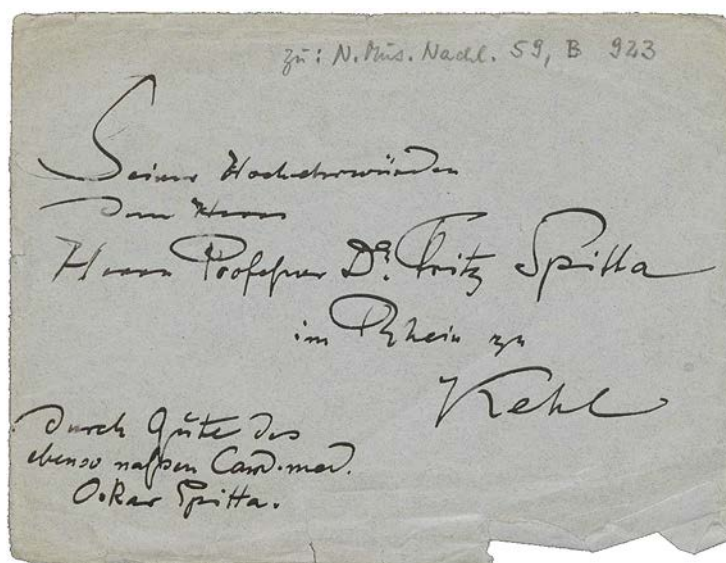 zu: N. Mus. Nachl. 59, B 923
Seiner Hochehrwürden
dem Herrn
Herrn Professor Dr. Fritz Spitta
im Rhein zu
Kehl
durch Güte des
ebenso nassen Cand. med.
Oskar Spitta.